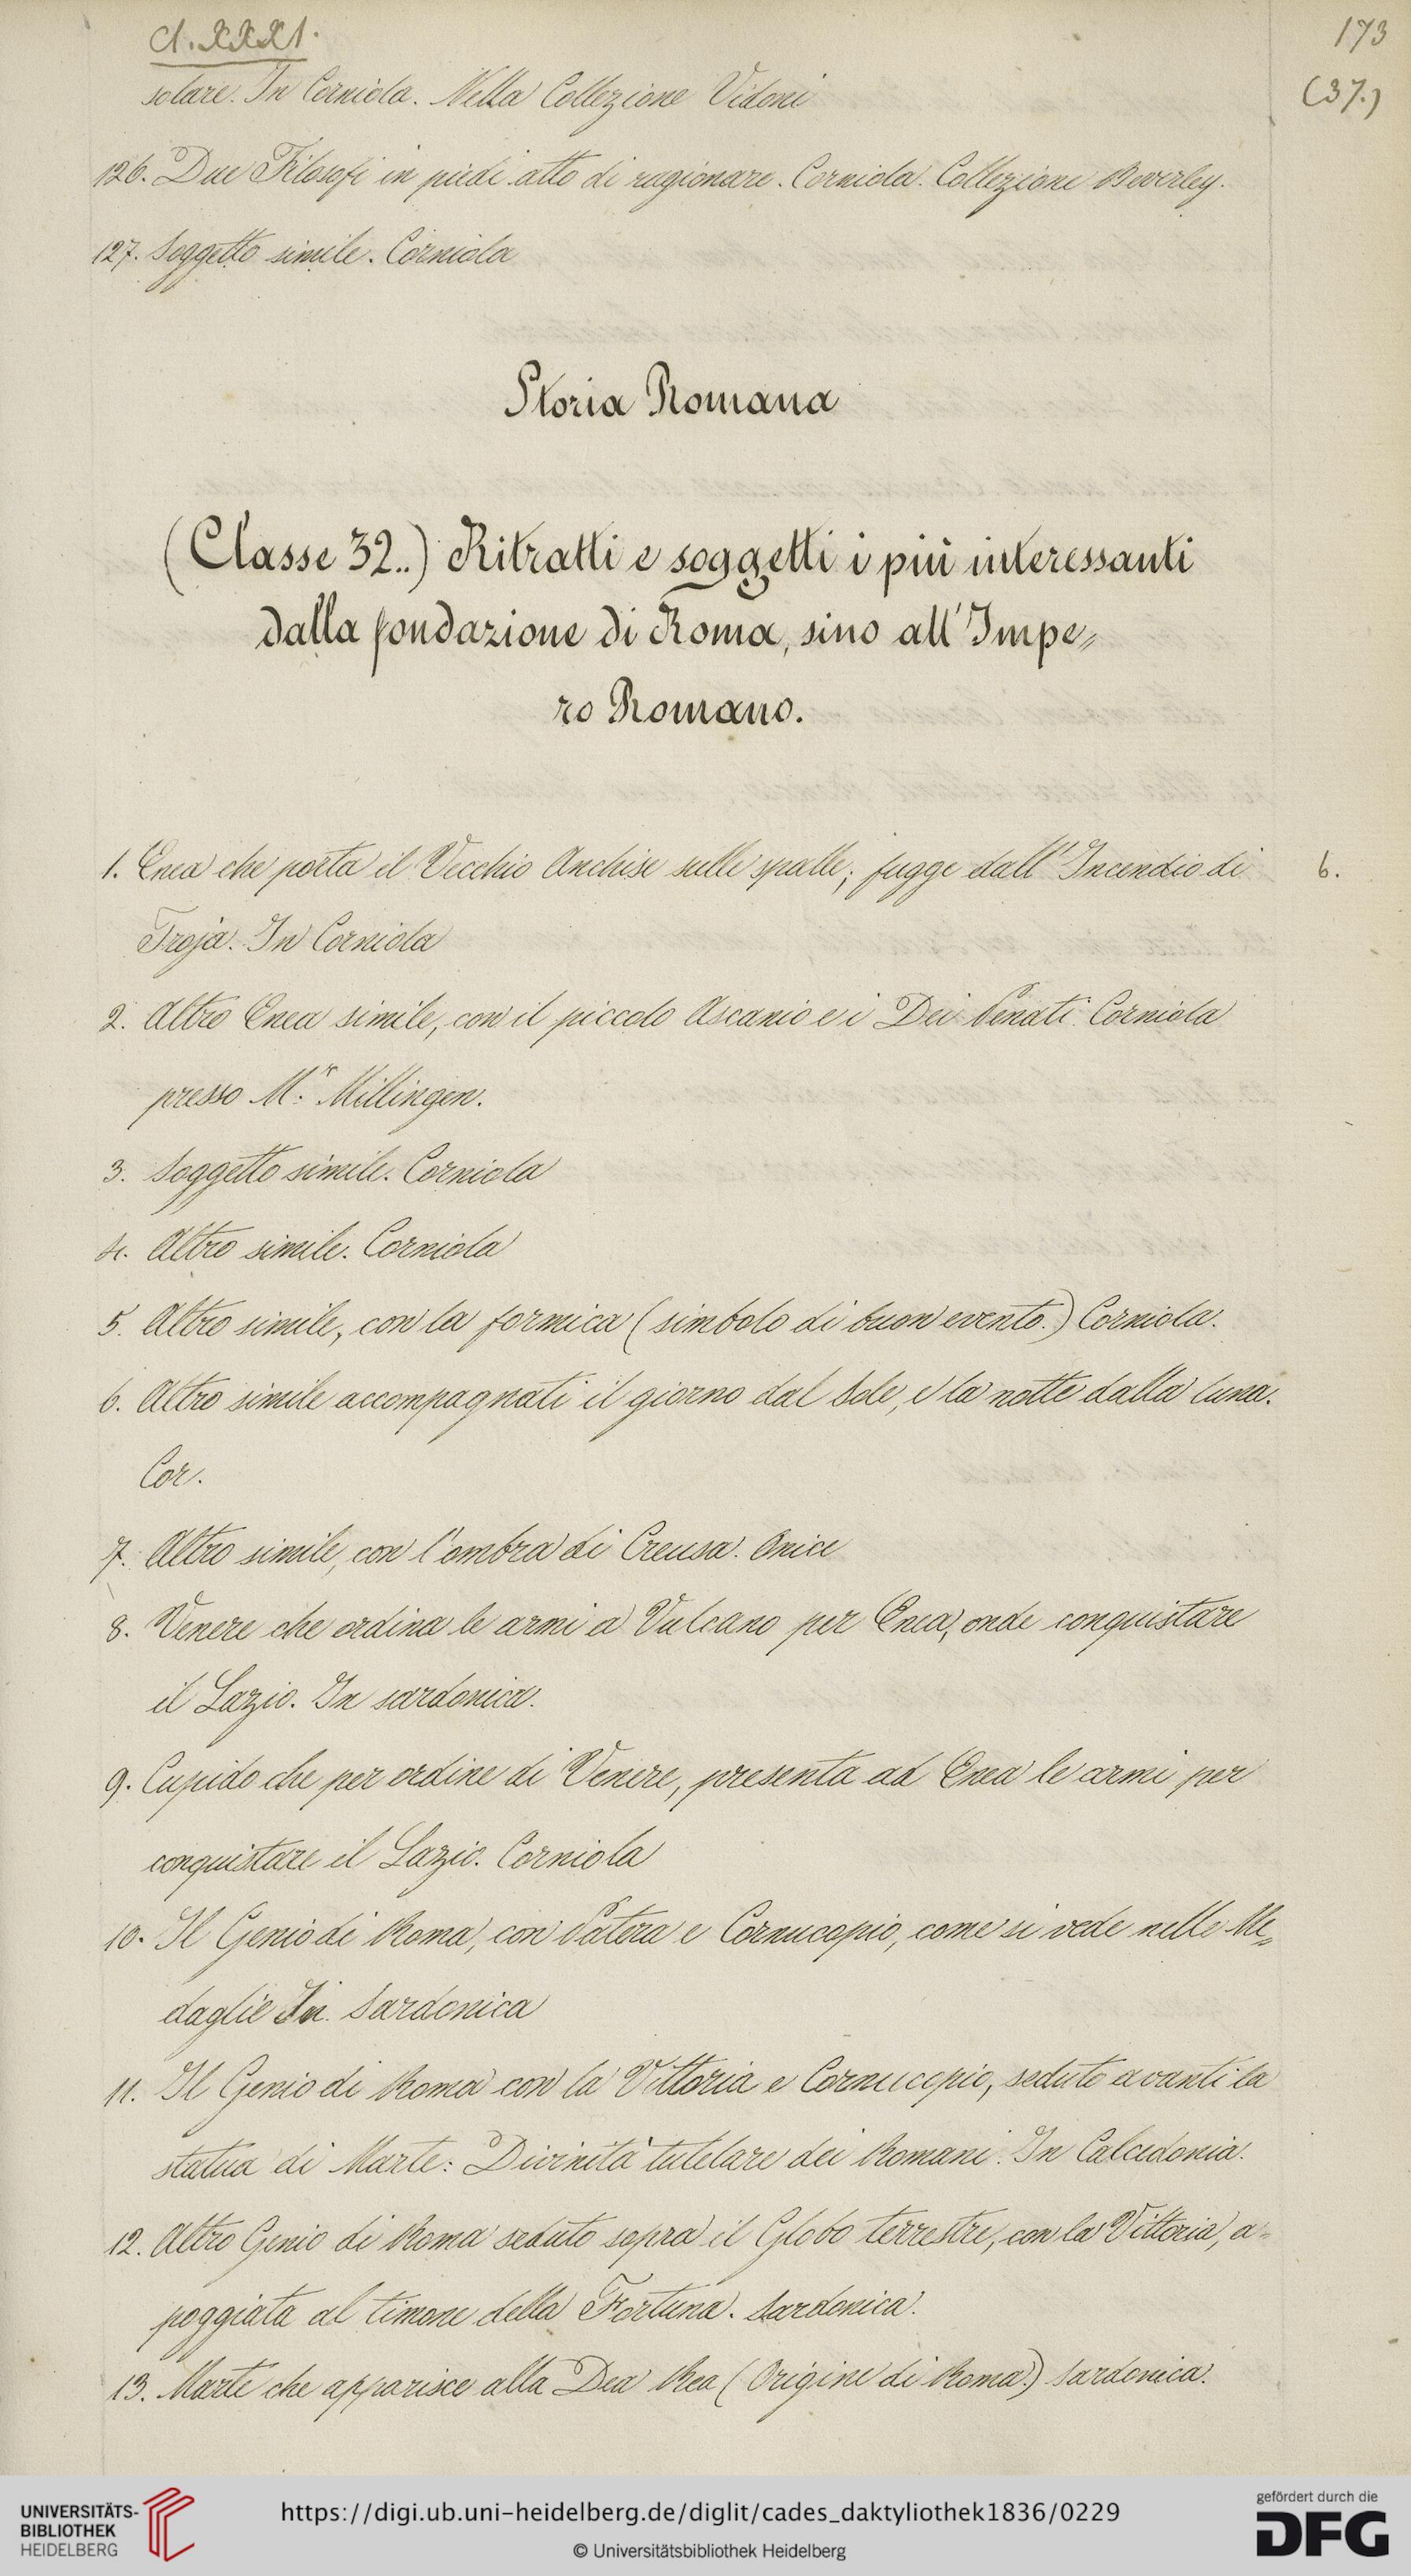 Cl. XXXI.
173
(37.)
solare. In Corniola. Nella Collezione Vidoni
126. Due Filosofi in piedi atto di ragionare. Corniola. Collezione Beverley.
127. Soggetto simile. Corniola
Storia Romana
(Classe 32..) Ritratti e soggetti i più interessanti
dalla fondazione di Roma, sino all'Impe„
ro Romano.
1. Enea che porta il Vecchio Anchise sulle spalle; fugge dall'Incendio di
6.
Troja. In Corniola
2. Altro Enea simile, con il piccolo Ascanio e i Dei Penati. Corniola
presso Mr. Millingen.
3. Soggetto simile. Corniola
4. Altro simile. Corniola
5. Altro simile, con la formica (simbolo di buon evento.) Corniola.
6. Altro simile accompagnati il giorno dal Sole, e la notte dalla luna.
Cor.
7. Altro simile, con l'ombra di Creusa. Onice
8. Venere che ordina le armi a Vulcano per Enea, onde conquistare
il Lazio. In sardonica.
9. Cupido che per ordine di Venere, presenta ad Enea le armi per
conquistare il Lazio. Corniola
10. Il Genio di Roma, con Patera e Cornucopio, come si vede nelle Me„
daglie In. Sardonica
11. Il Genio di Roma con la Vittoria e Cornucopio, seduto avanti la
statua di Marte: Divinità tutelare dei Romani. In Calcedonia.
12. Altro Genio di Roma seduto sopra il Globo terrestre, con la Vittoria, a-
poggiata al timone della Fortuna. Sardonica.
13. Marte che apparisce alla Dea Rea (Origine di Roma.) Sardonica.
UNIVERSITÄTS-
BIBLIOTHEK
HEIDELBERG
https://digi.ub.uni-heidelberg.de/diglit/cades_daktyliothek1836/0229
© Universitätsbibliothek Heidelberg
gefördert durch die
DFG